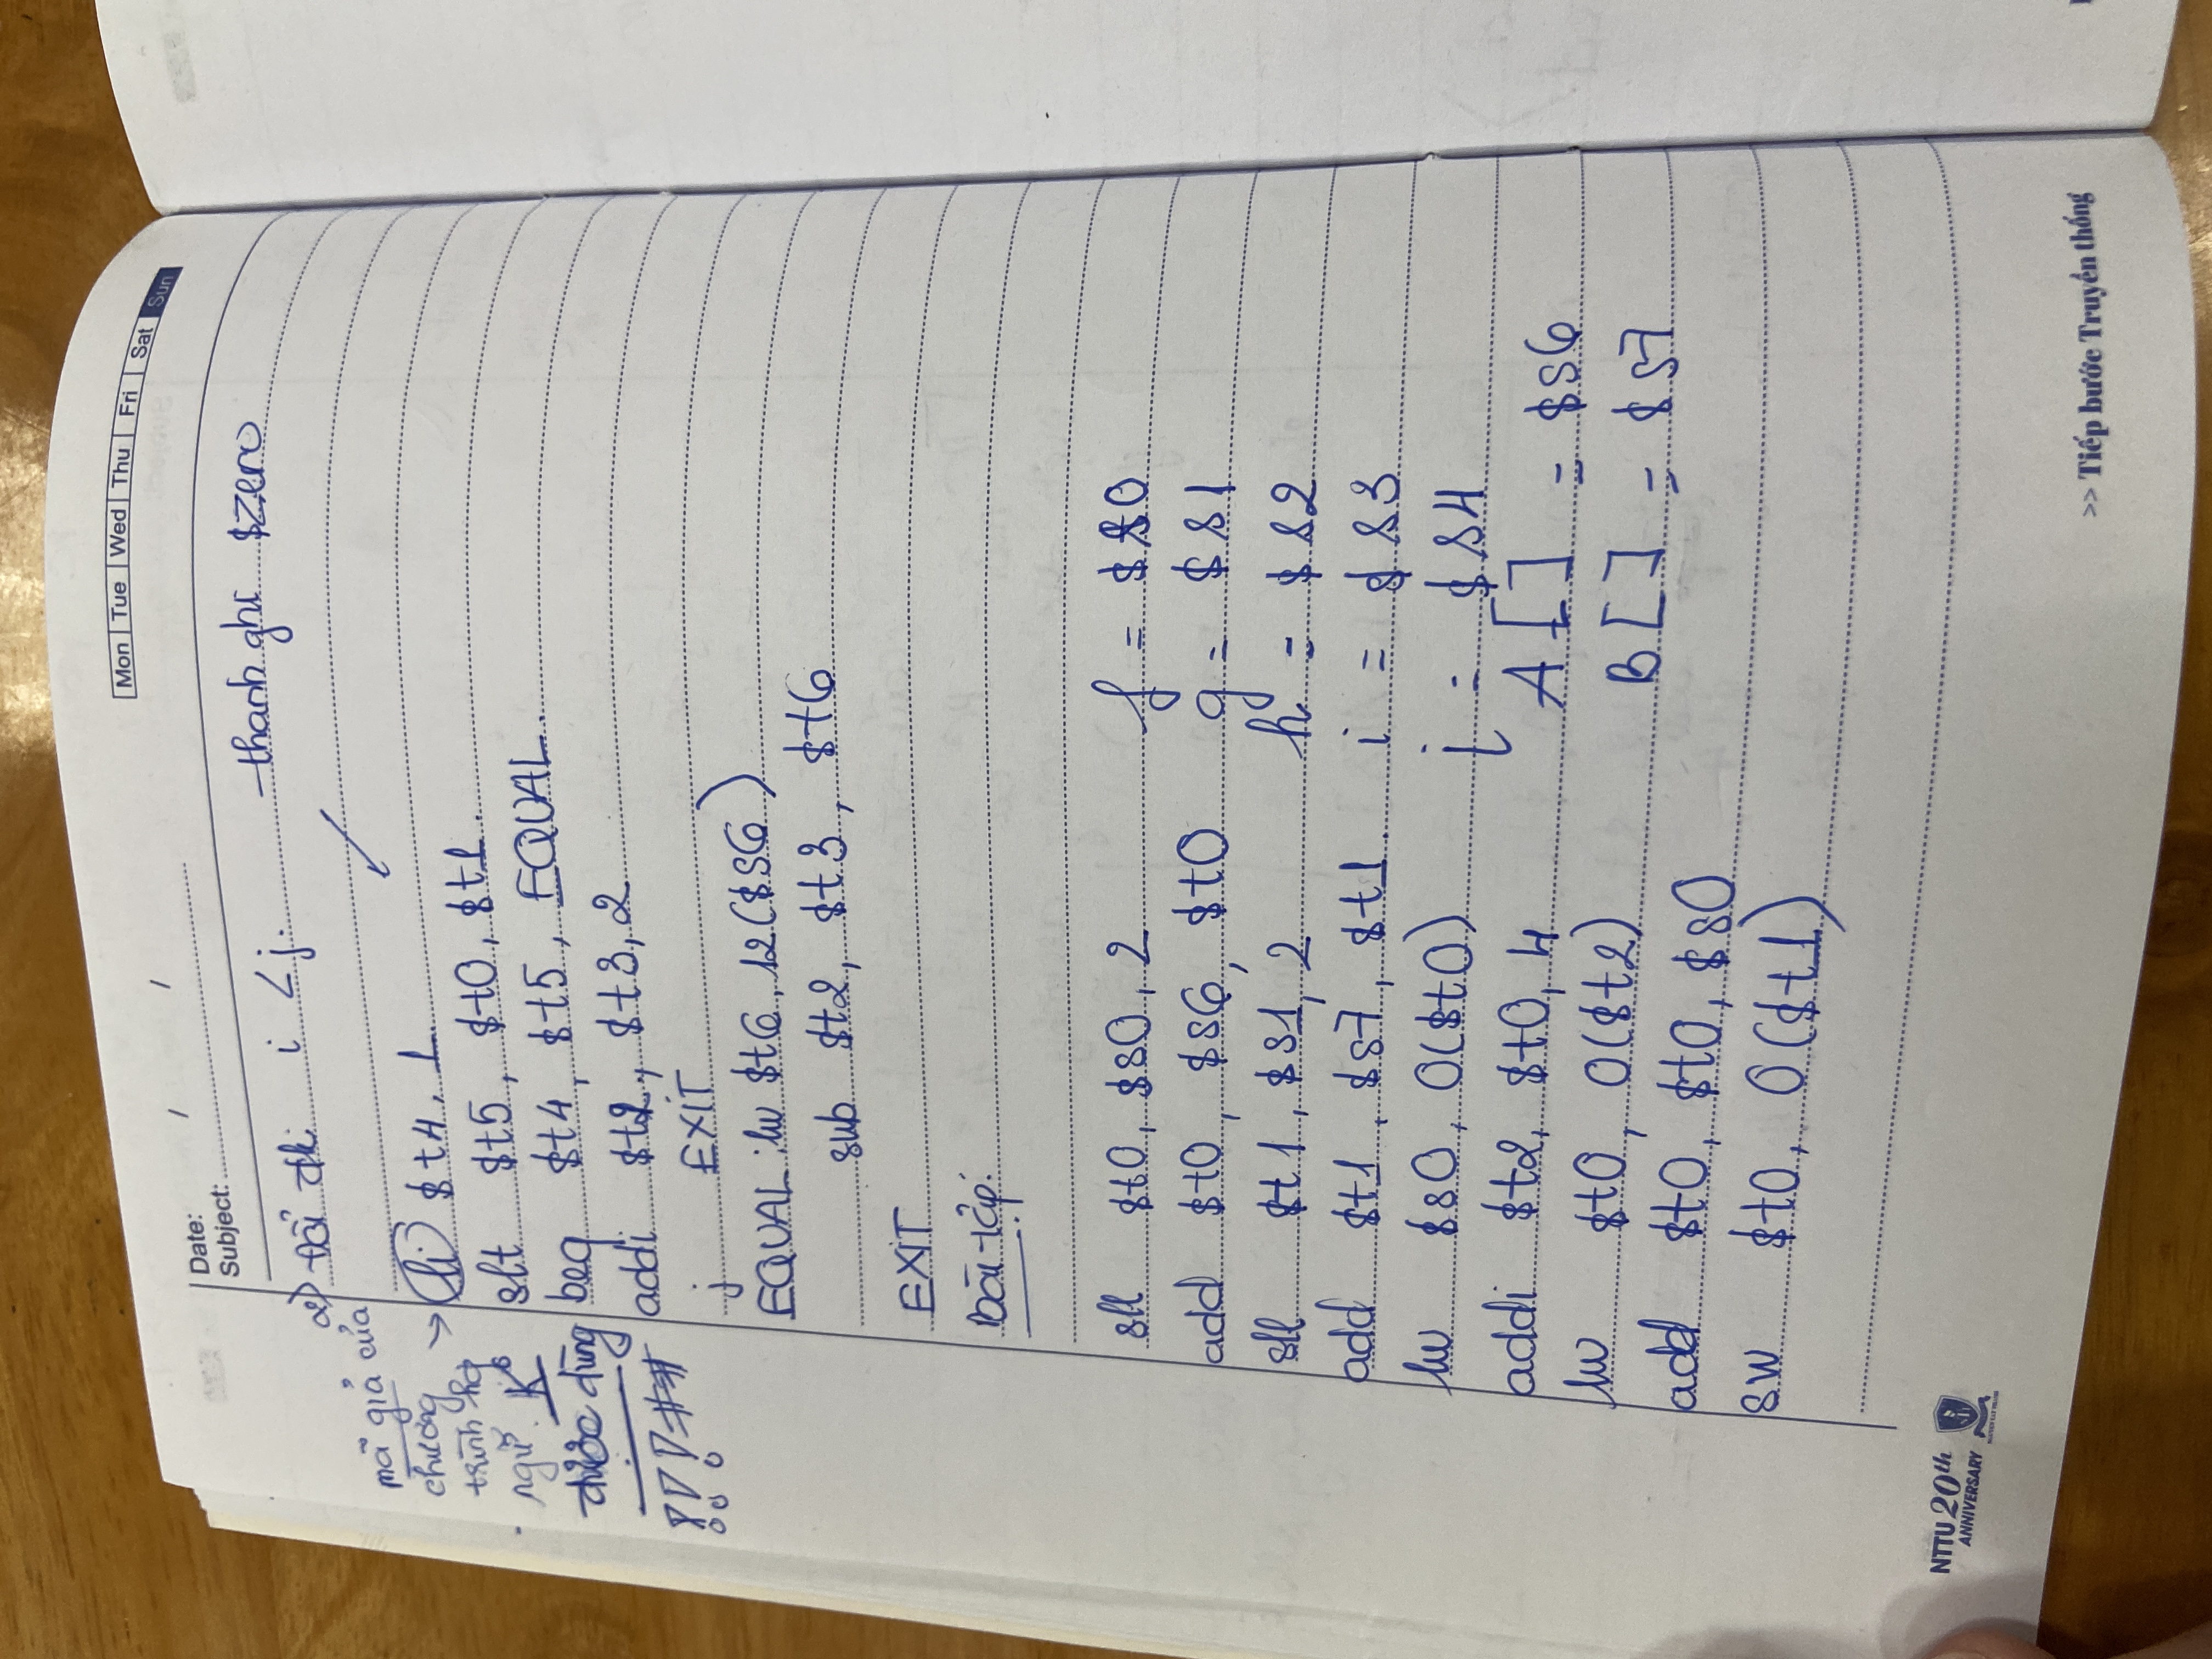 Mon Tue Wed Thu Fri Sat Sun
Date: / /
Subject:
2) Đổi đk i < j. thanh ghi $zero
mã giả của
chương
trình hợp
ngữ. Ko
được dùng
!!! ##
li $t4, 1.
slt $t5, $t0, $t1.
beq $t4, $t5, EQUAL.
addi $t2, $t3, 2
j EXIT
EQUAL: lw $t6, 12($s6)
sub $t2, $t3, $t6
EXIT
Bài tập:
sll $t0, $s0, 2 f = $s0
add $t0, $s6, $t0 g = $s1
sll $t1, $s1, 2 h = $s2
add $t1, $s7, $t1. i = $s3
lw $s0, 0($t0) j = $s4
addi $t2, $t0, 4 A[] = $s6
lw $t0, 0($t2) B[] = $s7
add $t0, $t0, $s0
sw $t0, 0($t1)
NTTU 20th
ANNIVERSARY
NGUYEN TAT THANH
>> Tiếp bước Truyền thống